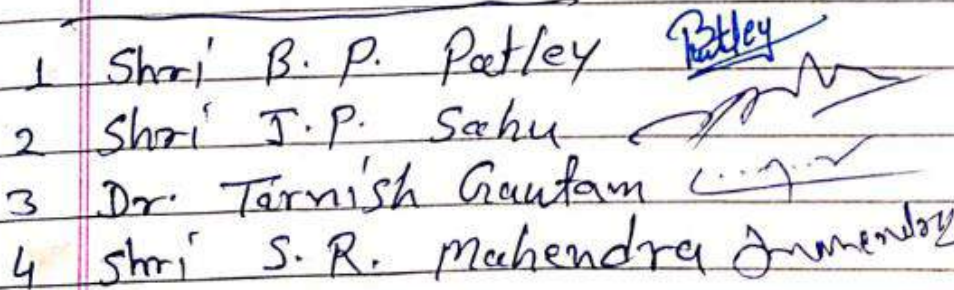 1 Shri B. P. Patley Patley
2 Shri J. P. Sahu
3 Dr. Tarnish Gautam
4 Shri S. R. Mahendra